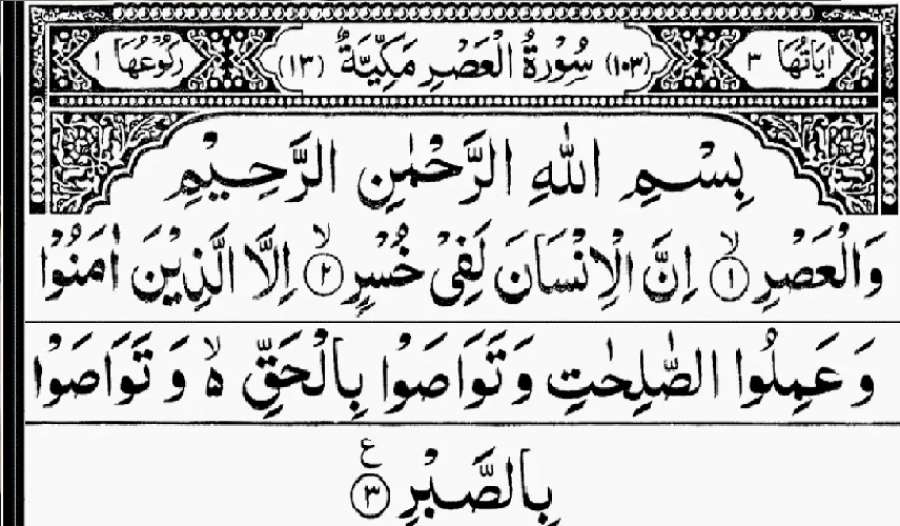 اٰيَاتُهَا ٣ (١٠٣) سُوْرَةُ الْعَصْرِ مَكِّيَّةٌ (١٣) رُكُوْعُهَا ١
بِسْمِ اللّٰهِ الرَّحْمٰنِ الرَّحِيْمِ
وَالْعَصْرِ ۙ﴿١﴾ اِنَّ الْاِنْسَانَ لَفِیْ خُسْرٍ ۙ﴿٢﴾ اِلَّا الَّذِيْنَ اٰمَنُوْا
وَ عَمِلُوا الصّٰلِحٰتِ وَتَوَاصَوْا بِالْحَقِّ ۙ۬ وَ تَوَاصَوْا
بِالصَّبْرِ ﴿٣﴾ ع